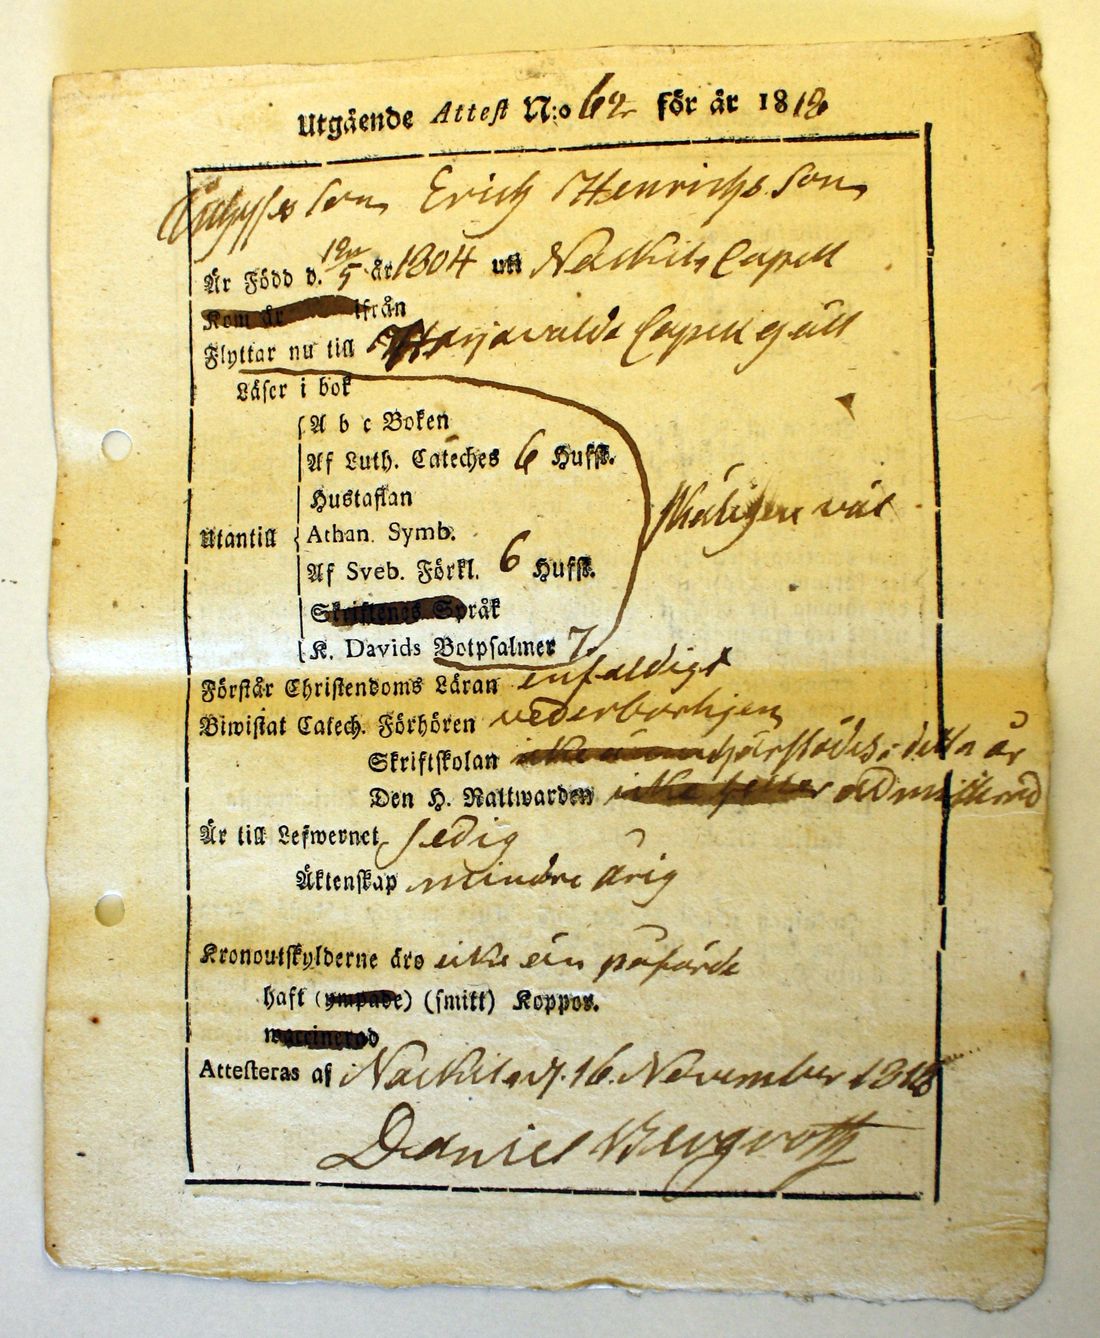 Utgående Attest N:o 62 för år 1818
son Erich Henrichs Son
Är Född d. 12/5 år 1804 uti Nackila Capell
Kom år ifrån
Flyttar nu till Harjavalda Capell gäll
Läser i bok
A b c Boken
Af Luth. Cateches 6 Hufst.
Hustaflan
Utantill Athan. Symb. väl
Af Sveb. Förkl. 6 Hufst.
Skriftenes Språk
K. Davids Botpsalmer 7
Förstår Christendoms Läran enfaldigt
Biwistat Catech. Förhören vederborligen
Skriftskolan härstädes i detta år
Den H. Nattwarden icke heller admitterad
Är till Lefwernet sedig
Äktenskap mindre årig
Kronoutskylderne äro icke än påförde
haft (ympade) (smitt) Koppor.
waccinerad
Attesteras af Nackila d. 16. November 1818
Daniel Bergroth